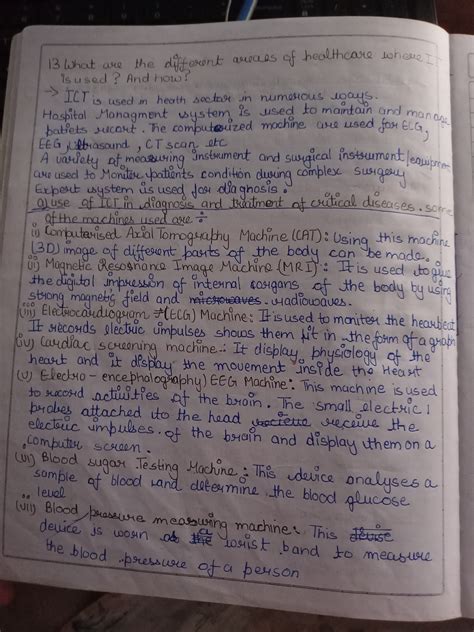 13 What are the different areaes of healthcare where I
is used? And how?
→ ICT is used in health sector in numerous ways.
Hospital Managment system is used to maintain and manage
patiets recort. The computerized machine are used for ECG,
EEG, ultrasound, CT scan etc
A variety of measuring instrument and surgical instrument/equipment
are used to Moniter patients condition during complex surgery
Expert system is used for diagnosis.
a) use of ICT in diagnosis and treatment of critical diseases. some
of the machines used are ÷
(i) Computarised Axial Tomography Machine (CAT): Using this machine
(3D) image of different parts of the body can be made.
(ii) Magnetic Resosnance Image Machine (MRI): It is used to give
the digital impression of internal organs of the body by using
strong magnetic field and microwaves radiowaves.
(iii) Electrocardiogram (ECG) Machine: It is used to moniter the hearbeat
It records electric impulses shows them it in the form of a graph
(iv) Cardiac screening machine:- It display physiology of the
heart and it display the movement inside the Heart
(v) Electro-encephalography) EEG Machine: This machine is used
to record activities of the brain. The small electric
probes attached to the head receive the
electric impulses of the brain and display them on a
computer screen.
(vi) Blood sugar Testing Machine: This device analyses a
sample of blood and determine the blood glucose
level
(vii) Blood pressure measuring machine: This
device is worn as a wrist band to measure
the blood pressure of a person